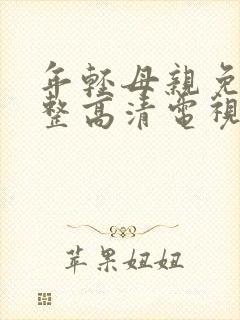 年輕母親免
整高清電視
苹果妞妞